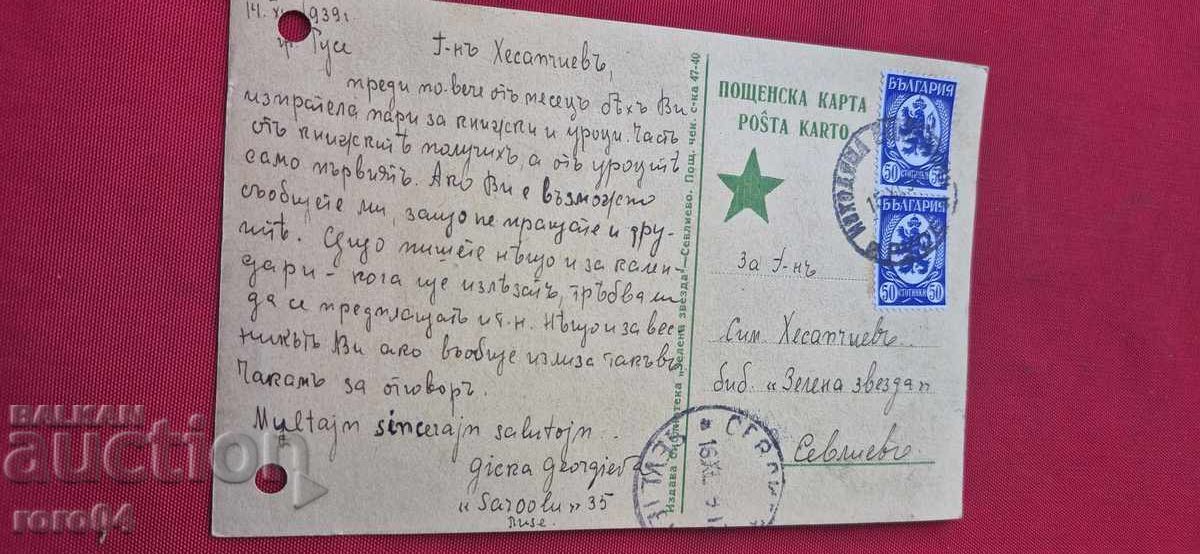 14. XI. 1939 г.
гр. Русе
Г-нъ Хесапчиевъ,
преди по-вече отъ месецъ бѣхъ Ви
изпратела пари за книжки и уроци. Часть
отъ книжкитѣ получихъ, а отъ уроцитѣ
само първиятъ. Ако Ви е възможно
съобщете ми, защо не пращате и дру-
гитѣ. Също пишете нѣщо и за кален-
дари - кога ще излѣзатъ, трѣбва ли
да се предплащатъ и т.н. Нѣщо и за вес-
никътъ Ви ако въобще излиза такъвъ.
Чакамъ за отговоръ.
Multajn sincerajn salutojn.
Georgieva
35
Ruse.
Издава библиотека „Зелена звезда“ — Севлиево. Пощ. чек. с-ка 47-40
ПОЩЕНСКА КАРТА
POŜTA KARTO
БЪЛГАРИЯ
50 СТОТИНКИ 50
БЪЛГАРИЯ
50 СТОТИНКИ 50
За Г-нъ
Сим. Хесапчиевъ
биб. „Зелена звезда“
Севлиево
BALKAN
auction
roro94